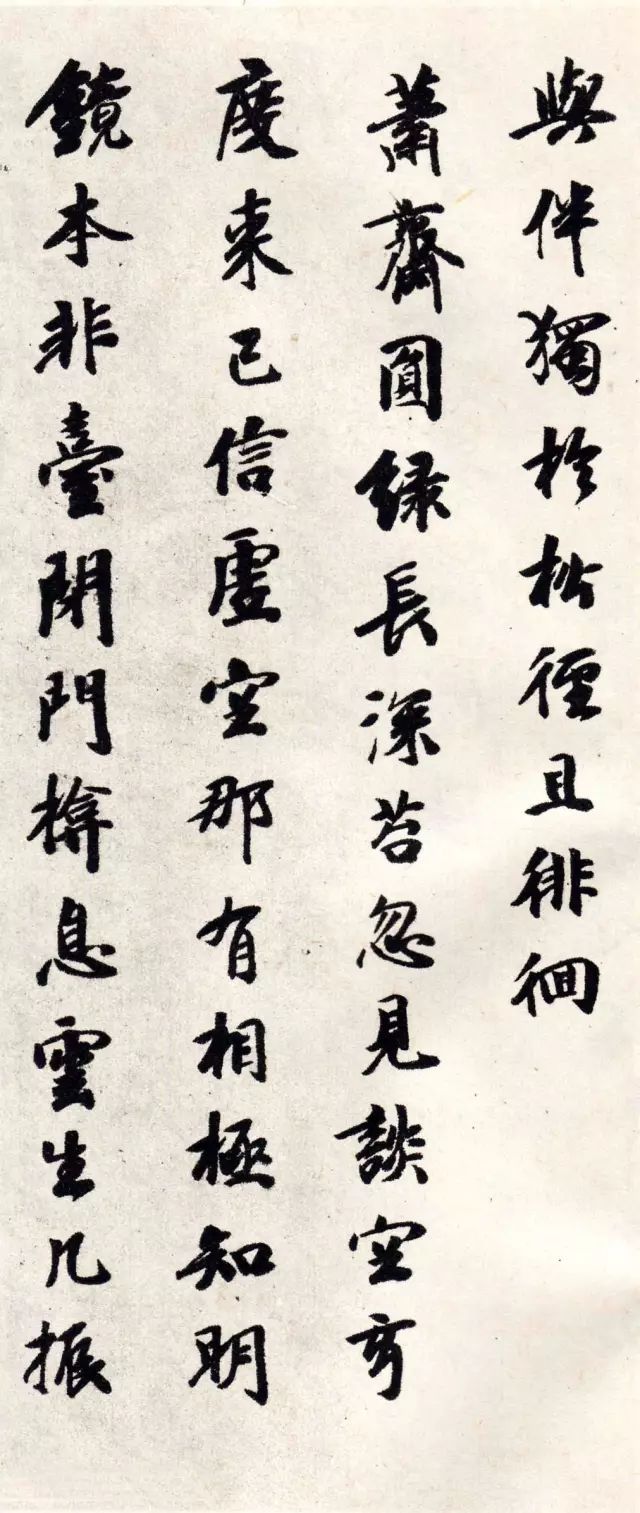 與伴獨於松徑且徘徊
蕭齋圓綠長深苔忽見談空
度來已信虛空那有相極知明
鏡本非臺閉門揜息雲生几振